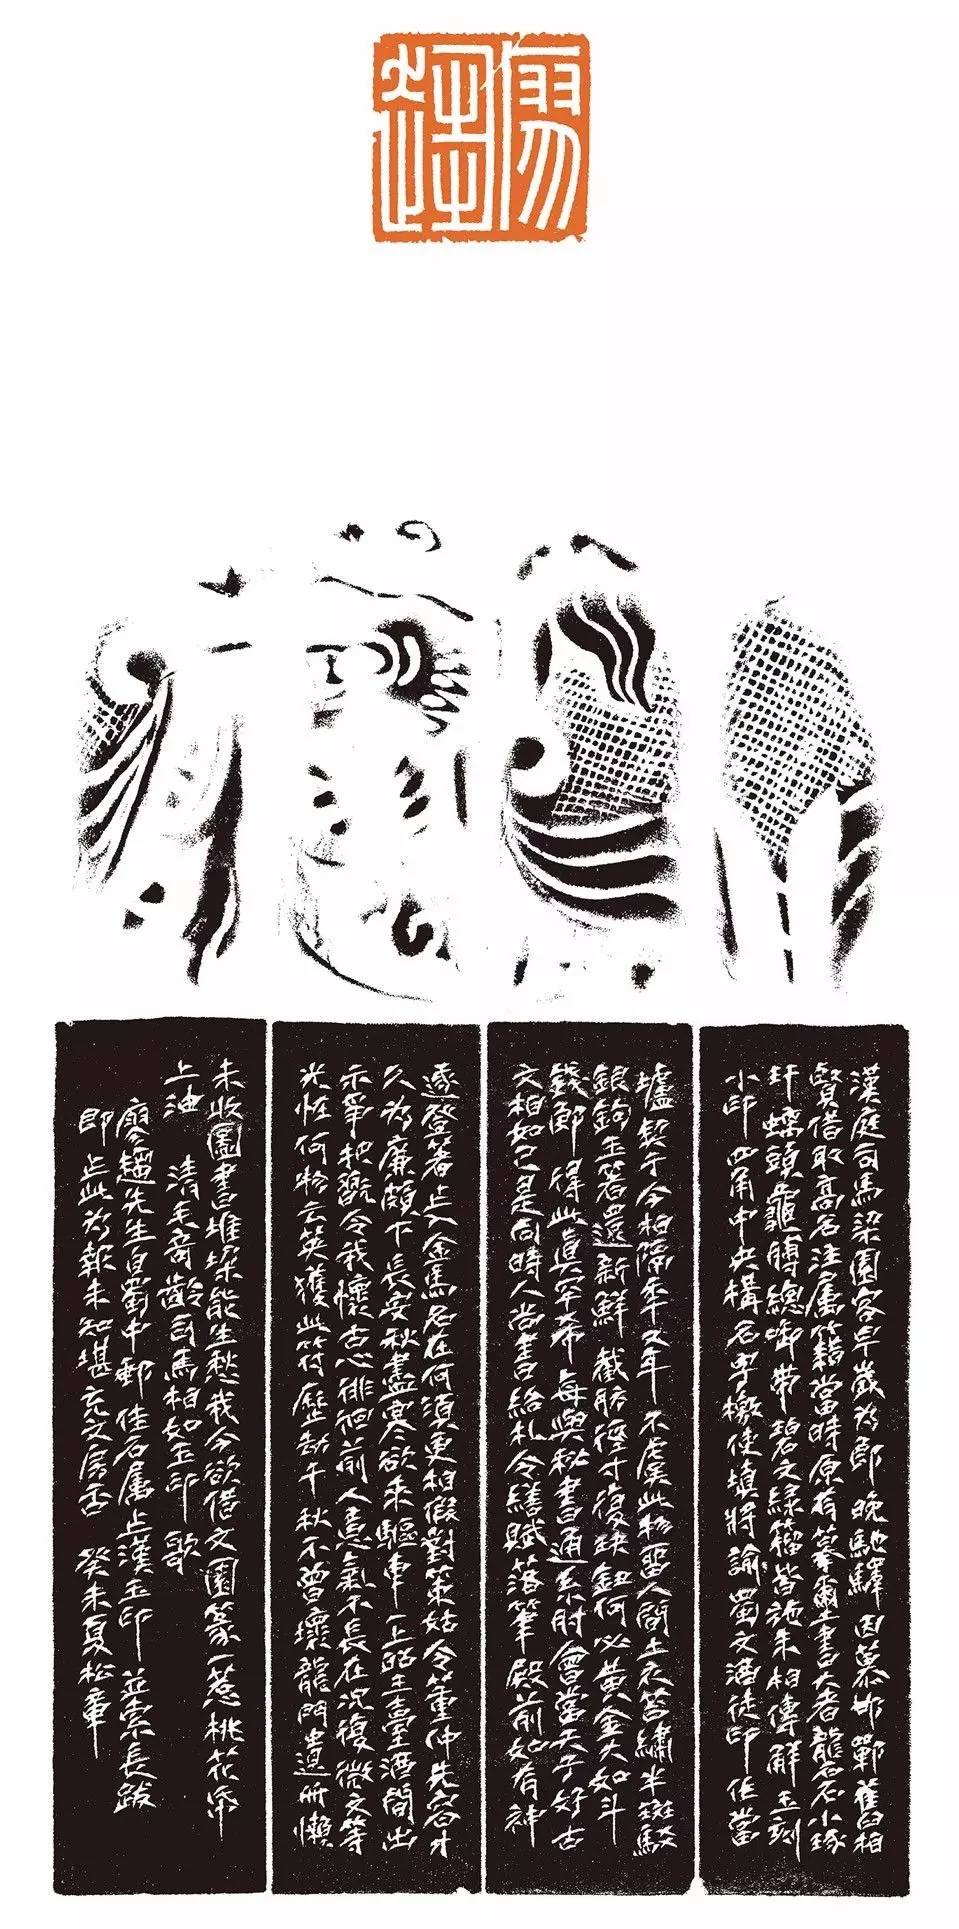 漢庭司馬梁園客早歲為郎晚馳驛因慕邯鄲舊相
賢借取高名注屬籍當時原有篆爾書大者龍石小琢
玕螭頭龜膊總啣帶碧文綠籀皆施朱相傳解玉刻
小印四角中央構名字檄使填將諭蜀文潘徒印作當
壚契于今相隔年又年不虞此物留人間土衣苔繡半斑駁
銀鉤玉箸還新鮮截肪徑寸復玦鈕何必黃金大如斗
錢郎得此真罕希每與秘書通系肘會當天子好古
文相如已是同時人尚書給札令繕賦落筆殿前如有神
遂登著作入金馬名在何須更相假對策姑令董仲先容才
久為廉頗下長安秋盡寒欲來驅車一上昭王臺酒間出
示爭把翫令我懷古心徘徊前人意氣不長在況復微文等
光怪何物玄英獲此符歷劫千秋不曾壞龍門遺冊懶
未收圖書堆案能生愁我今欲借文園篆一惹桃花帋
上油 清毛奇齡司馬相如玉印歌
廖趨先生自劉中郵佳石屬作漢玉印並索長跋
即作此為報未知堪充文房否 癸未夏松章